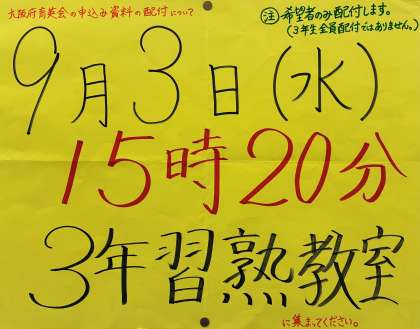 大阪府育英会の申込み資料の配付について
㊟希望者のみ配付します。
(3年生全員配付ではありません。)
9月3日(水)
15時20分
3年習熟教室
に集まってください。